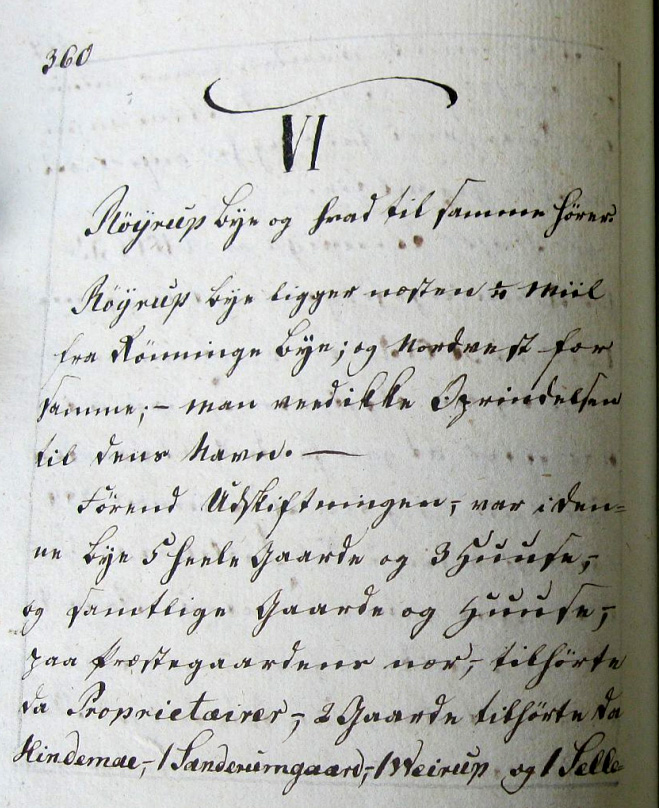 360
VI
Röÿrup bÿe og hvad til samme hører.
Röÿrup bÿe ligger næsten ½ Miil
fra Rönninge Bÿe; og Nordvest for
samme; – man veed ikke Oprindelsen
til dens Navn. —
Förend Udskiftningen, var i den=
ne bÿe 5 heele Gaarde og 3 Huuse,
og samtlige Gaarde og Huuse,
paa Præstegaardens nær, tilhørte
da Proprietairer, 2 Gaarde tilhørte da
Hindemae, 1 Sanderumgaard, 1 Weirup og 1 Selle